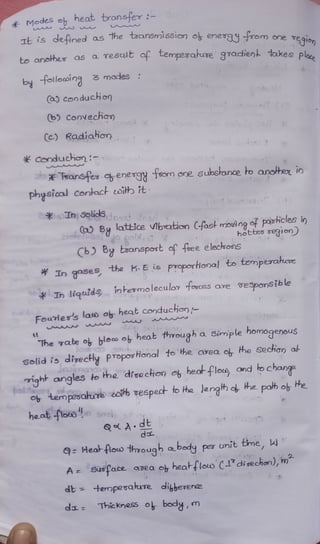 * Modes of heat transfer :-
It is defined as The transmission of energy from one region
to another as a result of temperature gradient takes place
by following 3 modes :
(a) conduction
(b) convection
(c) Radiation
* conduction :-
* Transfer of energy from one substance to another in
physical contact with it.
* In solids
(a) By lattice vibration (fast moving of particles in
hotter region)
(b) By transport of free electrons
* In gases, the K.E is proportional to temperature
* In liquids, intermolecular forces are responsible
Fourier's law of heat conduction :-
"The rate of flow of heat through a simple homogenous
solid is directly proportional to the area of the section at
right angles to the direction of heat flow, and to change
of temperature with respect to the length of the path of the
heat flow".
Q ∝ A. dt/dx
Q = Heat flow through a body per unit time, W
A = Surface area of heat flow (⊥r direction), m²
dt = temperature difference
dx = Thickness of body, m